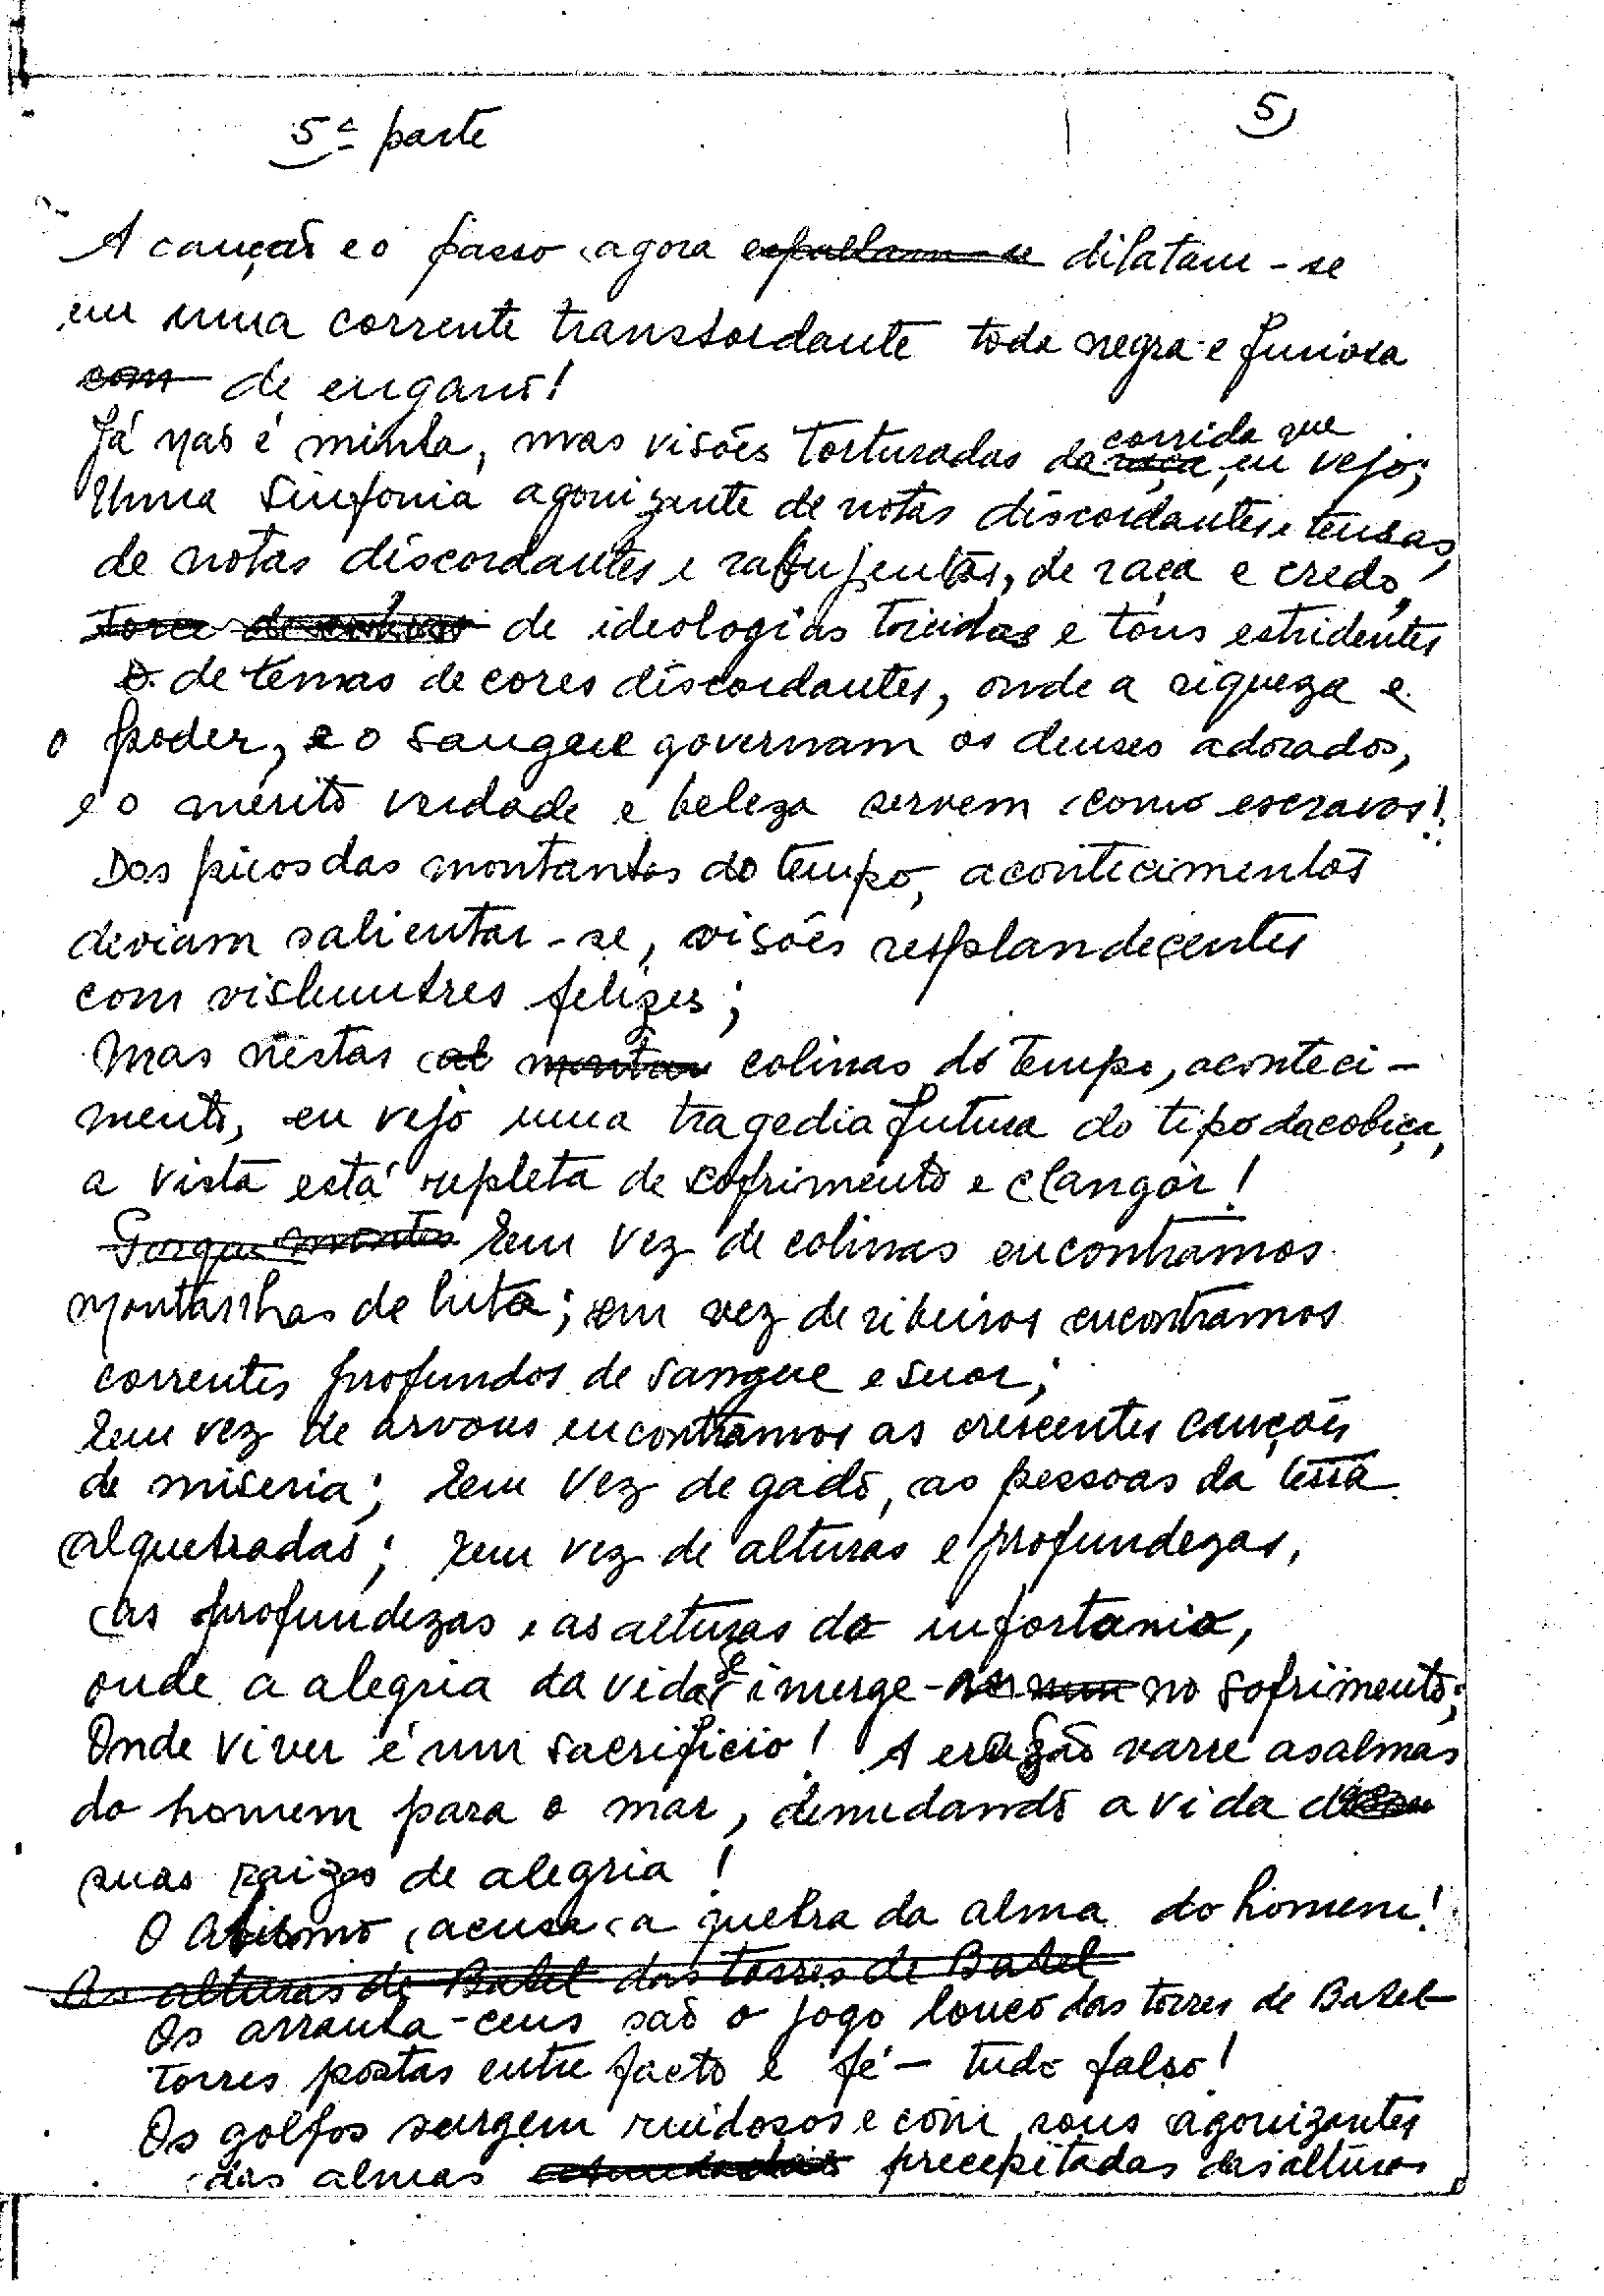 5ª parte
5
A canção e o passo agora espalham-se dilatam-se
em uma corrente transbordante toda negra e furiosa
com de engano!
Já não é minha, mas visões torturadas da raça, corrida que eu vejo;
Uma sinfonia agonizante de notas discordantes e tensas,
de notas discordantes e rabujentas, de raça e credo,
de ideologias torcidas e tons estridentes
e de temas de cores discordantes, onde a riqueza e
o poder, e o sangue governam os deuses adorados,
e o mérito verdade e beleza servem como escravos!
Dos picos das montanhas do tempo, acontecimentos
deviam salientar-se, visões resplandecentes
com vislumbres felizes;
Mas nestas al montan colinas do tempo, aconteci-
mento, eu vejo uma tragedia futura do tipo da cobiça,
a vista está repleta de sofrimento e clangor!
Porque montes Em vez de colinas encontramos
montanhas de luta; em vez de ribeiros encontramos
correntes profundos de sangue e suor;
Em vez de arvores encontramos as crescentes canções
de miseria; Em vez de gado, as pessoas da terra
alquebradas; Em vez de alturas e profundezas,
as profundezas e as alturas do infortanio,
onde a alegria da vida é imerge- no sofrimento;
Onde viver é um sacrificio! A erozão varre as almas
do homem para o mar, denudando a vida de
suas raizes de alegria!
O Abismo acusa a quebra da alma do homem!
As alturas de Babel das torres de Babel
Os arranha-ceus são o jogo louco das torres de Babel
Torres postas entre facto e fé — tudo falso!
Os golfos surgem ruidosos e com sons agonizantes
das almas precepitadas das alturas